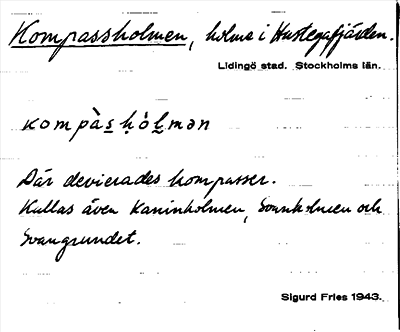 Kompassholmen, holme i Hustegafjärden.
Lidingö stad. Stockholms län.
kompàs̲ḥòl̲mən
Där devierades kompasser.
Kallas även Kaninholmen, Svanholmen och
Svangrundet.
Sigurd Fries 1943.